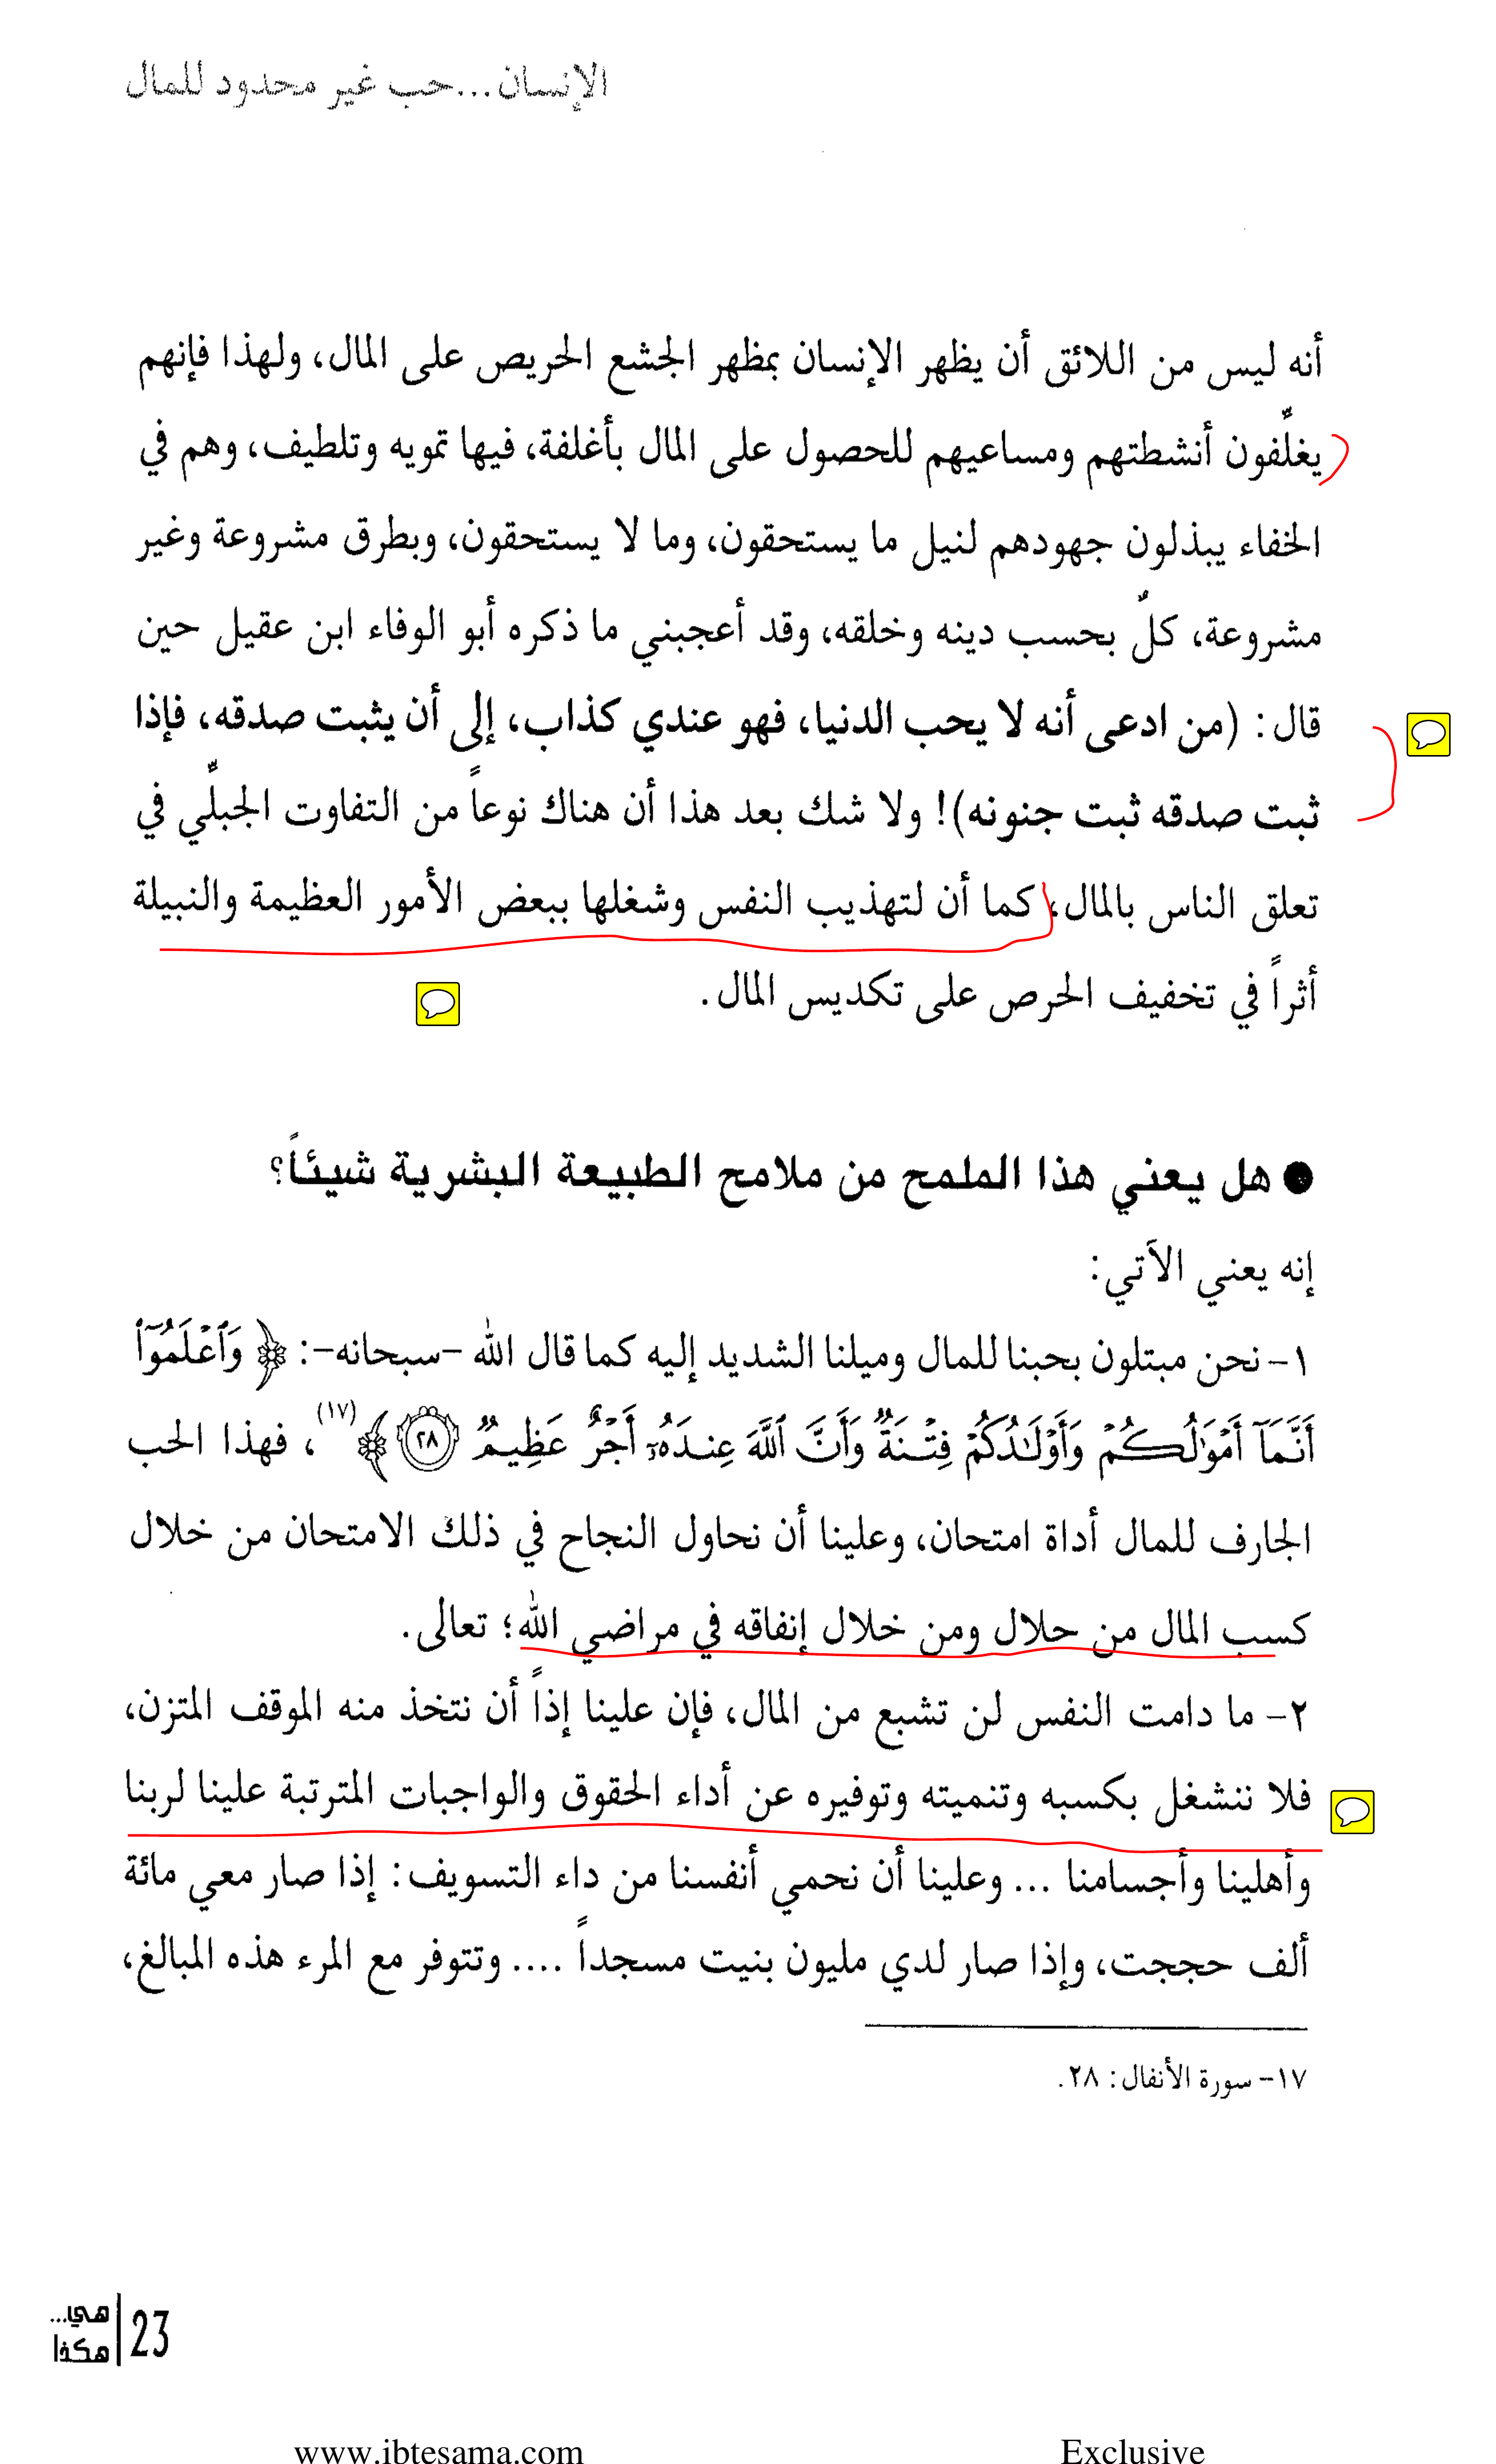 الإنسان...حب غير محدود للمال
أنه ليس من اللائق أن يظهر الإنسان بمظهر الجشع الحريص على المال، ولهذا فإنهم
يغلِّفون أنشطتهم ومساعيهم للحصول على المال بأغلفة، فيها تمويه وتلطيف، وهم في
الخفاء يبذلون جهودهم لنيل ما يستحقون، وما لا يستحقون، وبطرق مشروعة وغير
مشروعة، كلٌ بحسب دينه وخلقه، وقد أعجبني ما ذكره أبو الوفاء ابن عقيل حين
قال: (من ادعى أنه لا يحب الدنيا، فهو عندي كذاب، إلى أن يثبت صدقه، فإذا
ثبت صدقه ثبت جنونه)! ولا شك بعد هذا أن هناك نوعاً من التفاوت الجبلِّي في
تعلق الناس بالمال، كما أن لتهذيب النفس وشغلها ببعض الأمور العظيمة والنبيلة
أثراً في تخفيف الحرص على تكديس المال.
● هل يعني هذا الملمح من ملامح الطبيعة البشرية شيئاً؟
إنه يعني الآتي:
١- نحن مبتلون بحبنا للمال وميلنا الشديد إليه كما قال الله -سبحانه-: ﴿ وَٱعۡلَمُوٓاْ
أَنَّمَآ أَمۡوَٰلُكُمۡ وَأَوۡلَٰدُكُمۡ فِتۡنَةٞ وَأَنَّ ٱللَّهَ عِندَهُۥٓ أَجۡرٌ عَظِيمٞ ٢٨ ﴾(١٧)، فهذا الحب
الجارف للمال أداة امتحان، وعلينا أن نحاول النجاح في ذلك الامتحان من خلال
كسب المال من حلال ومن خلال إنفاقه في مراضي الله؛ تعالى.
٢- ما دامت النفس لن تشبع من المال، فإن علينا إذاً أن نتخذ منه الموقف المتزن،
فلا ننشغل بكسبه وتنميته وتوفيره عن أداء الحقوق والواجبات المترتبة علينا لربنا
وأهلينا وأجسامنا ... وعلينا أن نحمي أنفسنا من داء التسويف: إذا صار معي مائة
ألف حججت، وإذا صار لدي مليون بنيت مسجداً .... وتتوفر مع المرء هذه المبالغ،
١٧- سورة الأنفال: ٢٨.
هي... 23
هكذا
www.ibtesama.com Exclusive